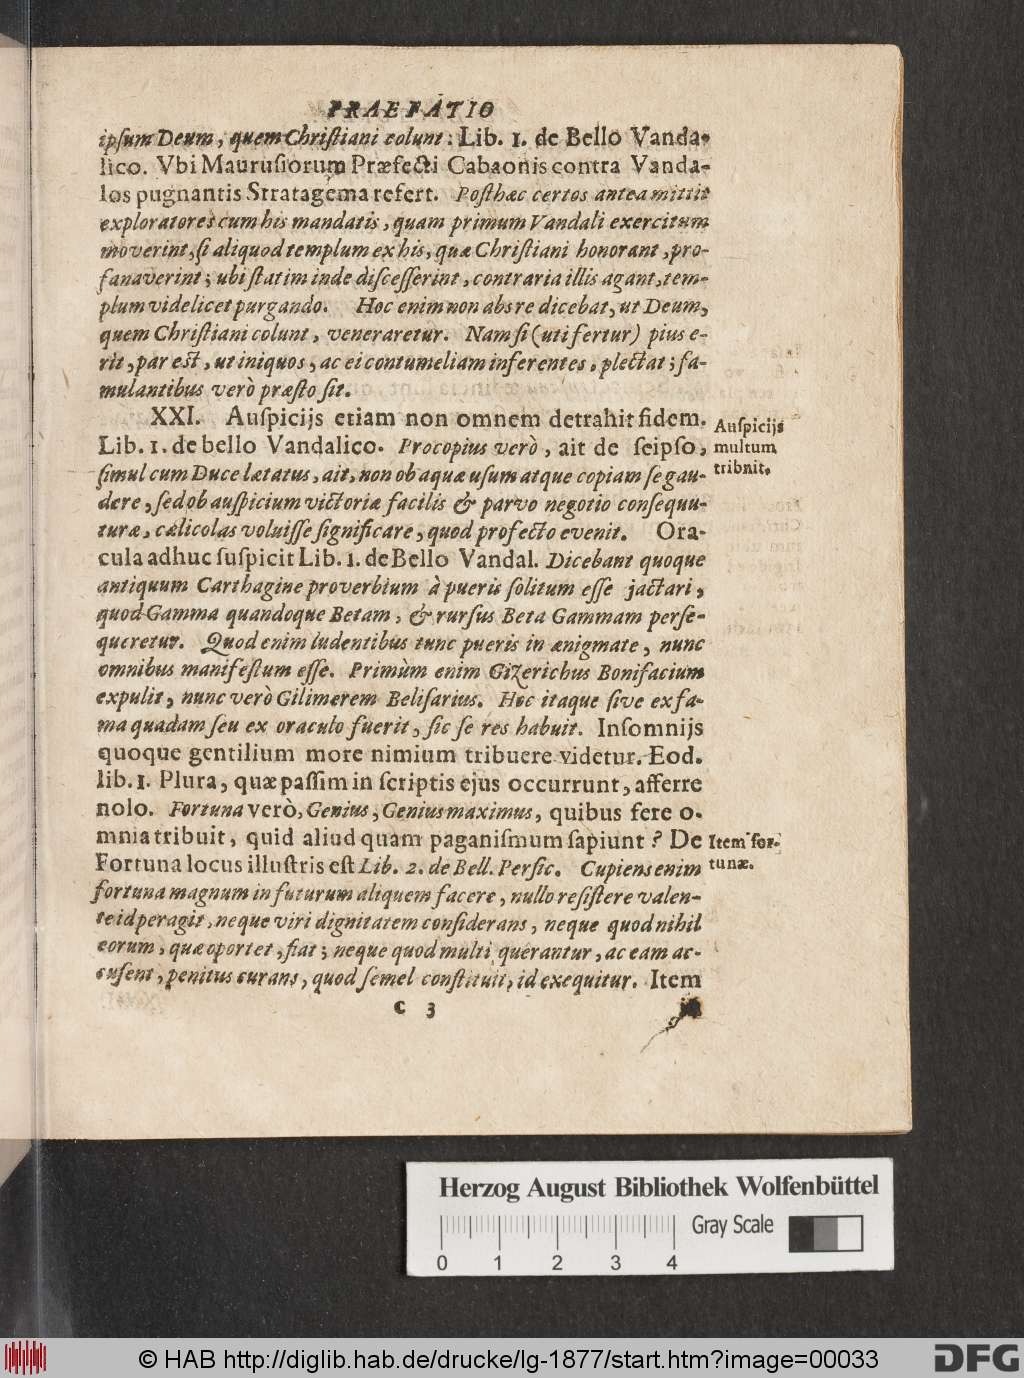 PRAEFATIO
ipſum Deum, quem Chriſtiani colunt: Lib. 1. de Bello Vanda-
lico. Vbi Mauruſiorum Præfecti Cabaonis contra Vanda-
los pugnantis Stratagema refert. Poſthæc certos antea mittit
exploratores cum his mandatis, quam primum Vandali exercitum
moverint, ſi aliquod templum ex his, quæ Chriſtiani honorant, pro-
fanaverint; ubi ſtatim inde diſceſſerint, contraria illis agant, tem-
plum videlicet purgando. Hoc enim non abs re dicebat, ut Deum,
quem Chriſtiani colunt, veneraretur. Nam ſi (uti fertur) pius e-
rit, par est, ut iniquos, ac ei contumeliam inferentes, plectat; fa-
mulantibus verò præſto ſit.
XXI. Auſpicijs etiam non omnem detrahit fidem.
Lib. 1. de bello Vandalico. Procopius verò, ait de ſeipſo,
ſimul cum Duce lætatus, ait, non ob aquæ uſum atque copiam ſe gau-
dere, ſed ob auſpicium victoriæ facilis & parvo negotio conſequu-
turæ, cælicolas voluiſſe ſignificare, quod profecto evenit. Ora-
cula adhuc ſuſpicit Lib. 1. de Bello Vandal. Dicebant quoque
antiquum Carthagine proverbium à pueris ſolitum eſſe jactari,
quod Gamma quandoque Betam, & rurſus Beta Gammam perſe-
queretur. Quod enim ludentibus tunc pueris in ænigmate, nunc
omnibus manifeſtum eſſe. Primùm enim Gizerichus Bonifacium
expulit, nunc verò Gilimerem Beliſarius. Hoc itaque ſive ex fa-
ma quadam ſeu ex oraculo fuerit, ſic ſe res habuit. Inſomnijs
quoque gentilium more nimium tribuere videtur. Eod.
lib. 1. Plura, quæ paſſim in ſcriptis ejus occurrunt, afferre
nolo. Fortuna verò, Genius, Genius maximus, quibus fere o-
mnia tribuit, quid aliud quam paganiſmum ſapiunt? De
Fortuna locus illuſtris eſt Lib. 2. de Bell. Perſic. Cupiens enim
fortuna magnum in futurum aliquem facere, nullo reſiſtere valen-
te id peragit, neque viri dignitatem conſiderans, neque quod nihil
eorum, quæ oportet, fiat; neque quod multi querantur, ac eam ac-
cuſent, penitus curans, quod ſemel conſtituit, id exequitur. Item
C 3
Auſpicijs
multum
tribuit.
Item for-
tunæ.
Herzog August Bibliothek Wolfenbüttel
Gray Scale
0 1 2 3 4
© HAB http://diglib.hab.de/drucke/lg-1877/start.htm?image=00033
DFG